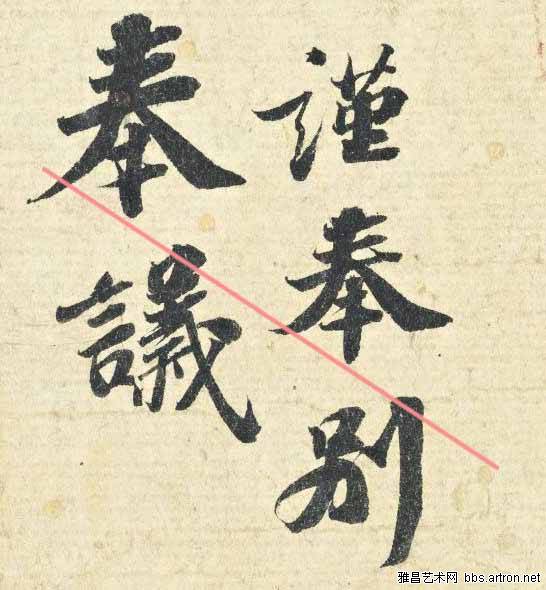 謹奉別
奉議
雅昌艺术网 bbs.artron.net